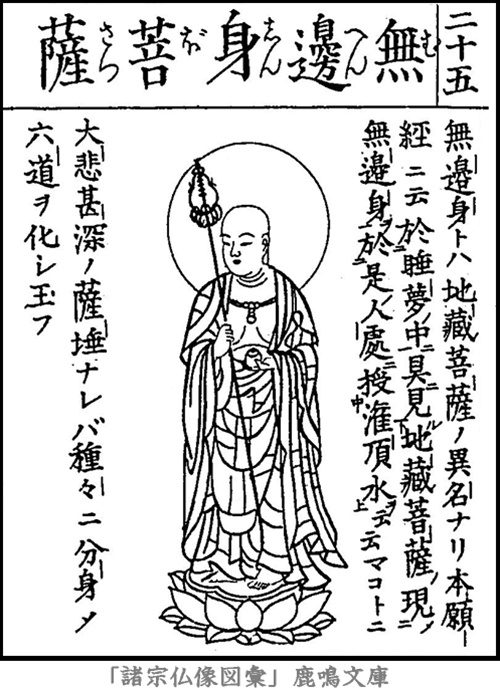 二十五
無邊身菩薩
むへんしんぼさつ
無邊身トハ地藏菩薩ノ異名ナリ本願
經ニ云於睡夢ノ中ニ具ニ見ル地藏菩薩ノ現ノ
無邊身ヲ於是ノ人ノ處ニ授ク灌頂水ヲ云云マコトニ
大悲甚深ノ薩埵ナレバ種々ニ分身ノ
六道ヲ化シ玉フ
「諸宗仏像図彙」鹿鳴文庫